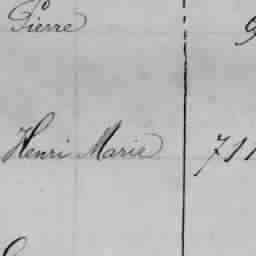 Pierre 9
Henri Marie 711